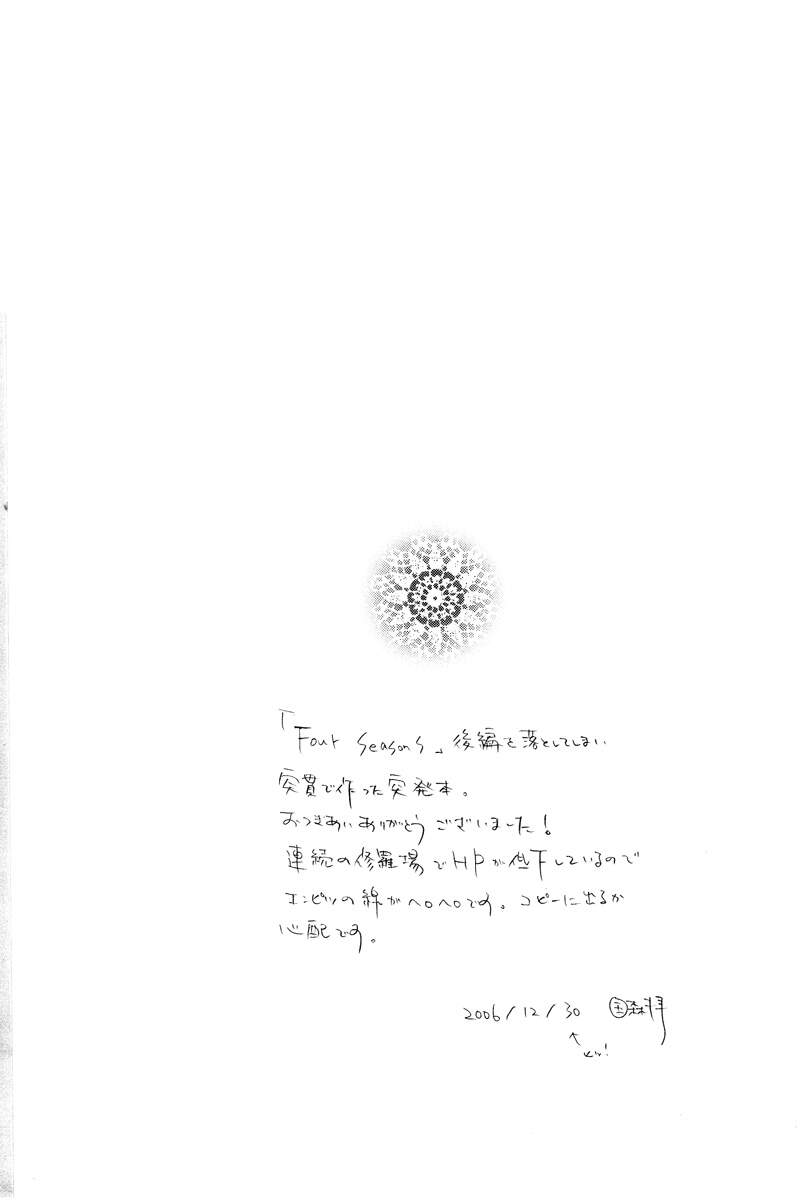 「Four Seasons」後編を落としてしまい
突貫で作った突発本。
おつきあいありがとうございました!
連続の修羅場でHPが低下しているので
エンピツの線がヘロヘロです。コピーに出るか
心配です。
2006/12/30 国森拝